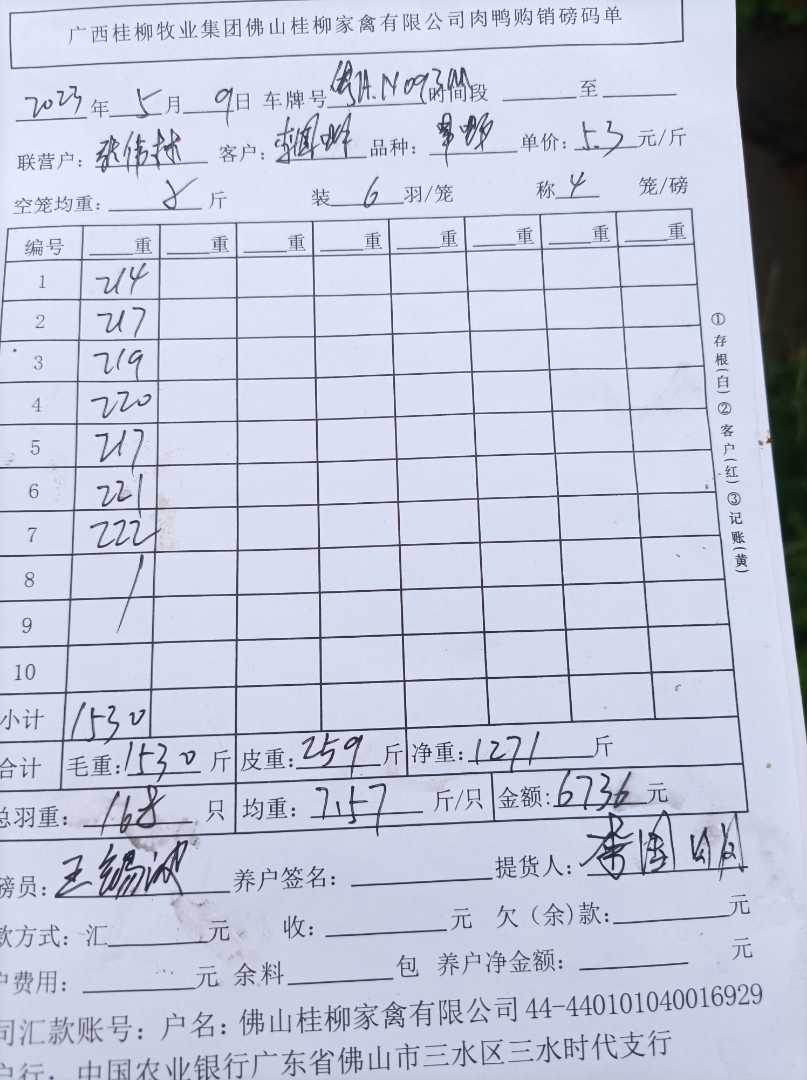 广西桂柳牧业集团佛山桂柳家禽有限公司肉鸭购销磅码单
2023年 5月 9日 车牌号 时间段 至
联营户: 客户: 李国 品种: 单价: 5.3 元/斤
空笼均重: 斤 装 6 羽/笼 称 4 笼/磅
编号 重 重 重 重 重 重 重 重
1 214
2 217
3 219
4 220
5 217
6 221
7 222
8
9
10
小计 1530
合计 毛重: 1530 斤 皮重: 259 斤 净重: 1271 斤
总羽重: 168 只 均重: 7.57 斤/只 金额: 6736 元
磅员: 王锡 养户签名: 提货人: 李国
款方式: 汇 元 收: 元 欠(余)款: 元
户费用: 元 余料 包 养户净金额: 元
司汇款账号: 户名: 佛山桂柳家禽有限公司 44-440101040016929
户行: 中国农业银行广东省佛山市三水区三水时代支行
①存根(白)②客户(红)③记账(黄)